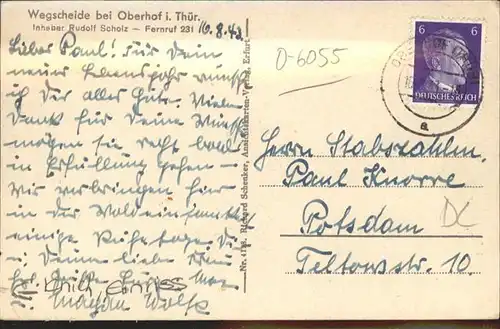 Wegscheide bei Oberhof i. Thür.
Inhaber Rudolf Scholz — Fernruf 231
16.8.43
Lieber Paul! Für Dein
neues Lebensjahr wünsche
ich Dir alles Gute. Vielen
Dank für Deine Wünsche
mögen sie recht bald
in Erfüllung gehen —
Wir verbringen hier
in der Waldeinsamkeit
einige Ruhetage. Dir
u. Deiner lieben Frau
Wolff
Nr. 4118. Richard Schenker, Ansichtskarten-Verlag, Erfurt
0-6055
6 6
DEUTSCHES REICH
a
Herrn Stabszahlm.
Paul Knorre
Potsdam
Teltowerstr. 10.